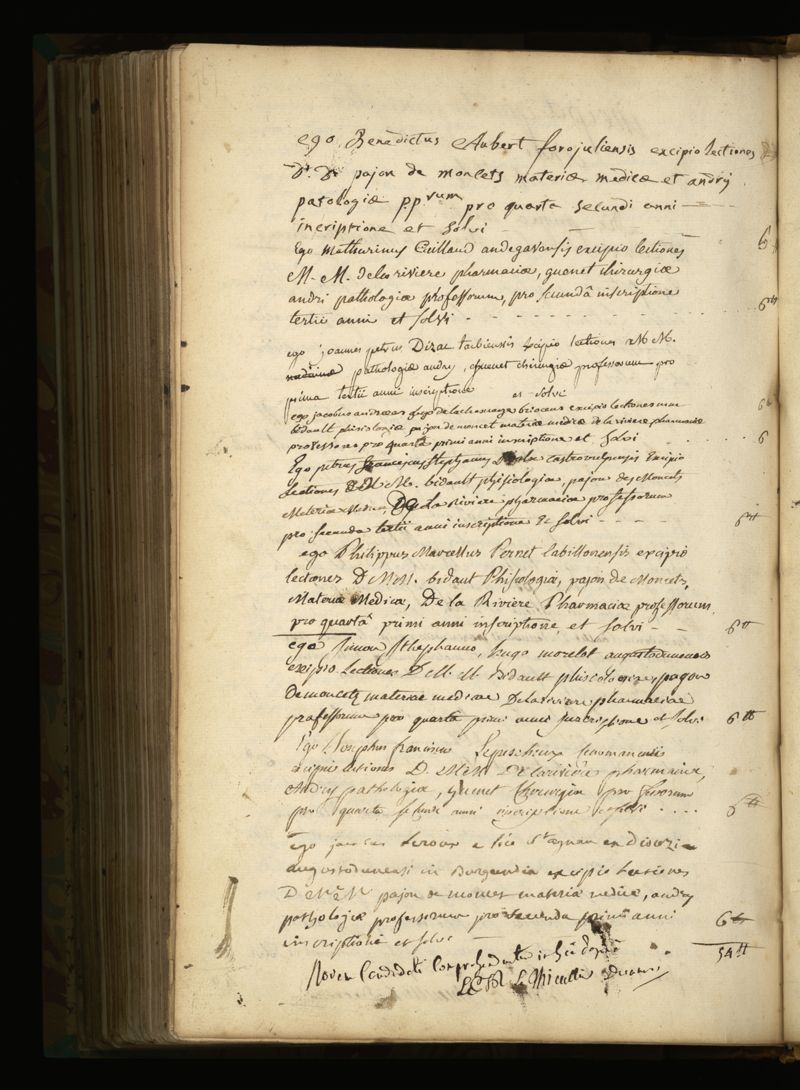 ego Benedictus Aubert forojuliensis excipio lectiones
pajon de moncets materiæ medicæ et andry
patologiæ pp rum pro quarta secundi anni
incriptione et solvi
Ego Mathurinus Guillaud andegavensis excipio lectiones 6
M. M. de la riviere pharmaciæ, guenet chirurgiæ
andri pathologiæ professorum, pro secundâ inscriptione
tertii anni et solvi 6 tt
ego joannes petrus Dizac tarbiensis excipio lectiones M M.
pathologiæ andry, guenet chirurgiæ professorum pro
prima tertii anni inscriptione et solvi 6
ego jacobus andreas excipio lectiones
bidault phisiologiæ pajon de moncet materiæ medicæ de la riviere pharmaciæ
professores pro quarta primi anni inscriptione et solvi 6
Ego petrus franciscus stephanus Excipio
Lectiones D M M. bidault phisiologiæ, pajon des Moncets
Materiæ Medicæ, De La Riviere pharmaciæ professorum
pro secunda tertii anni inscriptione Et solvi 6 tt
ego Philippus Marcellus Pernet Cabillonensis excipio
lectiones D M M. bidaut Phisologiæ, pajon de Moncets,
Materiæ Medicæ, De la Riviere Pharmaciæ professorum
pro quartâ primi anni inscriptione, et solvi 6 tt
ego Simon Sthephanus, hugo morelot augustodunensis
excipio Lectiones D M. M. Bidault phisiologiæ, pagon
De moncetz materiæ medicæ De la riviere pharmaciæ
professorum pro quarta primi anni inscriptione et solvi 6 tt
Ego Josephus franciscus Lepescheux cenomanensis
excipio lectiones D. M M De la riviere pharmaciæ,
Andry pathologiæ, guenet Chirurgiæ professorum
pro quarta secundi anni inscriptione et solvi 6 tt
Ego Leroux e
augustodunensi in Burgundia excipio Lectiones
D M M pajon de moncet materiæ medicæ, andry
pathologiæ professorum pro secunda primi anni
inscriptione et solvi 6 tt
54 tt
Novem Candidati Comprehenduntur in
Le Thieullier Decanus